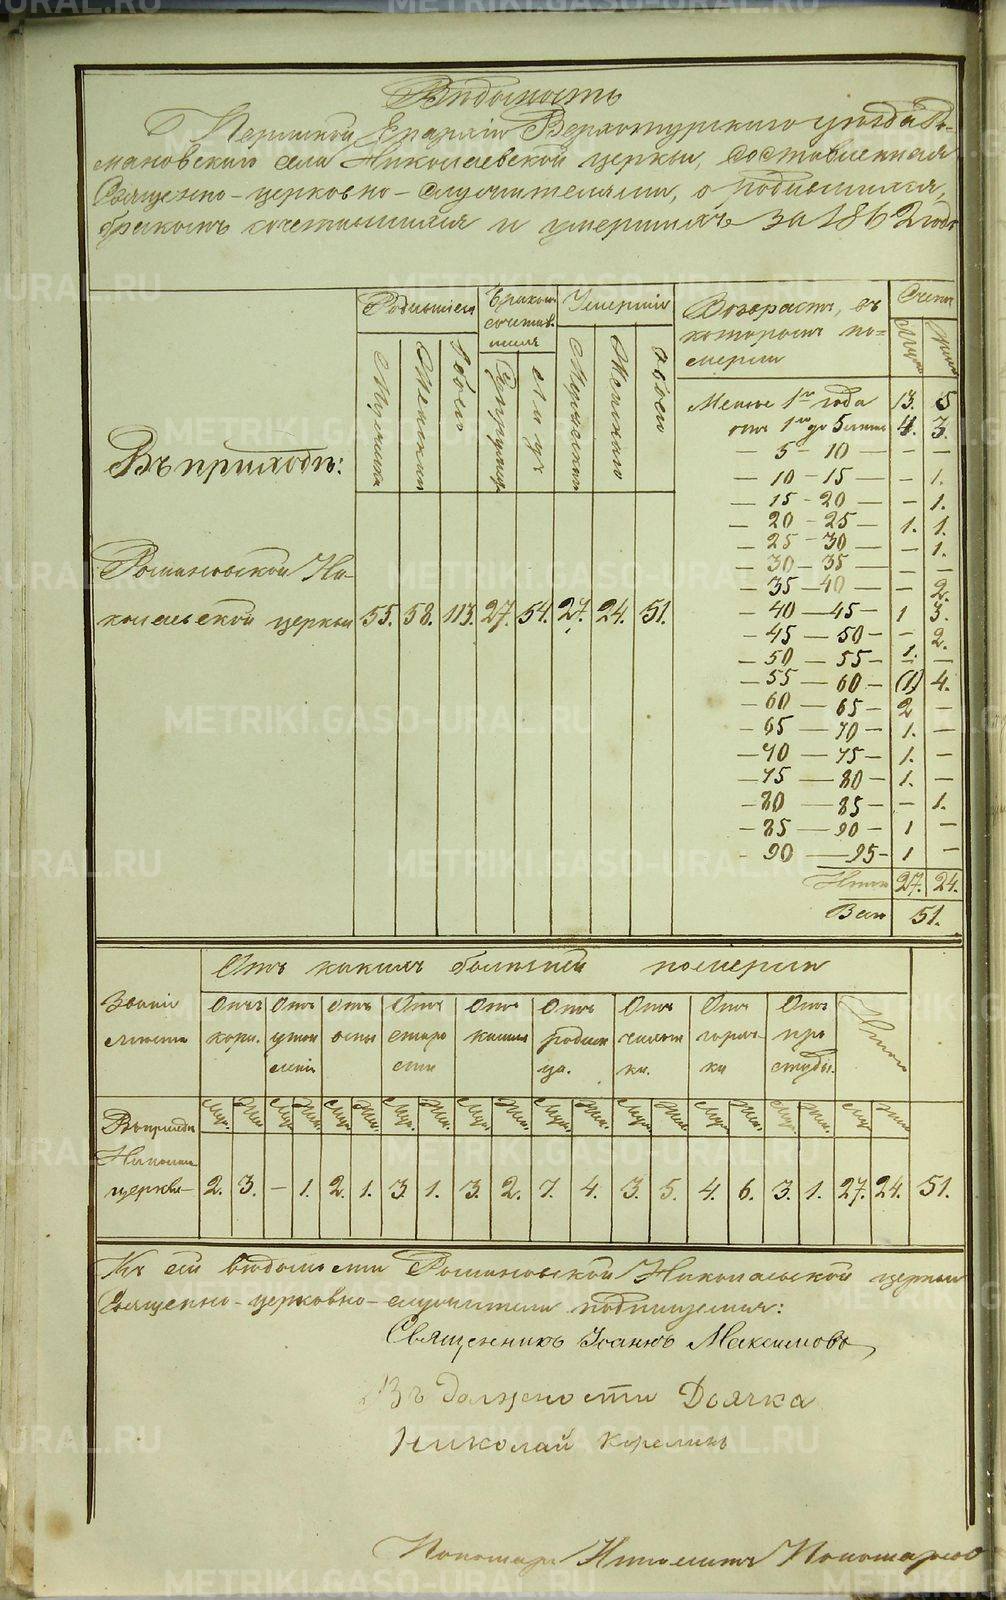 Вѣдомость
Пермской Епархіи Верхотурскаго уѣзда Ро-
мановскаго села Николаевской церкви, составленная
Священно-церковно-служителями, о родившихся,
бракомъ сочетавшихся и умершихъ за 1862 годъ
Въ приходѣ:
Родившіеся
Мужеска
Женскаго
Обоего
Бракомъ
сочетав-
шихся
Супруговъ
Умершіе
Мужескаго
Женскаго
Обоего
Возрастъ, въ
которомъ по-
мерли
Счетъ
Муж.
Жен.
Романовской Ни-
колаевской церкви 55. 58. 113. 27. 54. 27. 24. 51.
Менѣе 1го года 13. 5
отъ 1го до 5 лѣтъ 4. 3.
5 - 10 — — —
— 10 - 15 — — 1.
— 15 - 20 — — 1.
— 20 - 25 — 1. 1.
— 25 - 30 — — 1.
— 30 - 35 — — —
— 35 - 40 — — 2.
— 40 — 45 — 1 3.
— 45 — 50 — — 2.
— 50 — 55 — 1. —
— 55 — 60 — (1) 4.
— 60 — 65 — 2 —
— 65 — 70 — 1. —
— 70 — 75 — 1. —
— 75 — 80 — 1. —
— 80 — 85 — — 1.
— 85 — 90 — 1 —
— 90 — 95 — 1 —
Итого 27. 24.
Всего 51.
Отъ какихъ болѣзней померли
Званіе
мѣста
Отъ
кори.
Отъ
утоп
ленія
Отъ
оспы
Отъ
старо
сти
Отъ
кашля
Отъ
родим
ца.
Отъ
чахот
ки.
Отъ
горяч-
ки
Отъ
про
студы.
Итого
Въ приходѣ Муж. Жен. Муж. Жен. Муж. Жен. Муж. Жен. Муж. Жен. Муж. Жен. Муж. Жен. Муж. Жен. Муж. Жен. Муж. Жен.
Николаев.
церкви — 2. 3. — 1. 2. 1. 3. 1. 3. 2. 7. 4. 3. 5. 4. 6. 3. 1. 27. 24. 51.
Къ сей вѣдомости Романовской Николаевской церкви
Священно-церковно-служители подпищемся:
Священникъ Іоаннъ Максимовъ
Въ должности Дьячка
Николай Корелинъ
Пономарь Ипполитъ Пономаревъ
METRIKI.GASO-URAL.RU